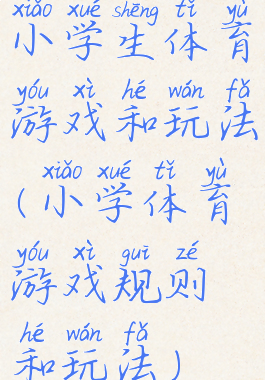 xiǎo xué shēng tǐ yù
小学生体育
yóu xì hé wán fǎ
游戏和玩法
xiǎo xué tǐ yù
(小学体育
yóu xì guī zé
游戏规则
hé wán fǎ
和玩法)